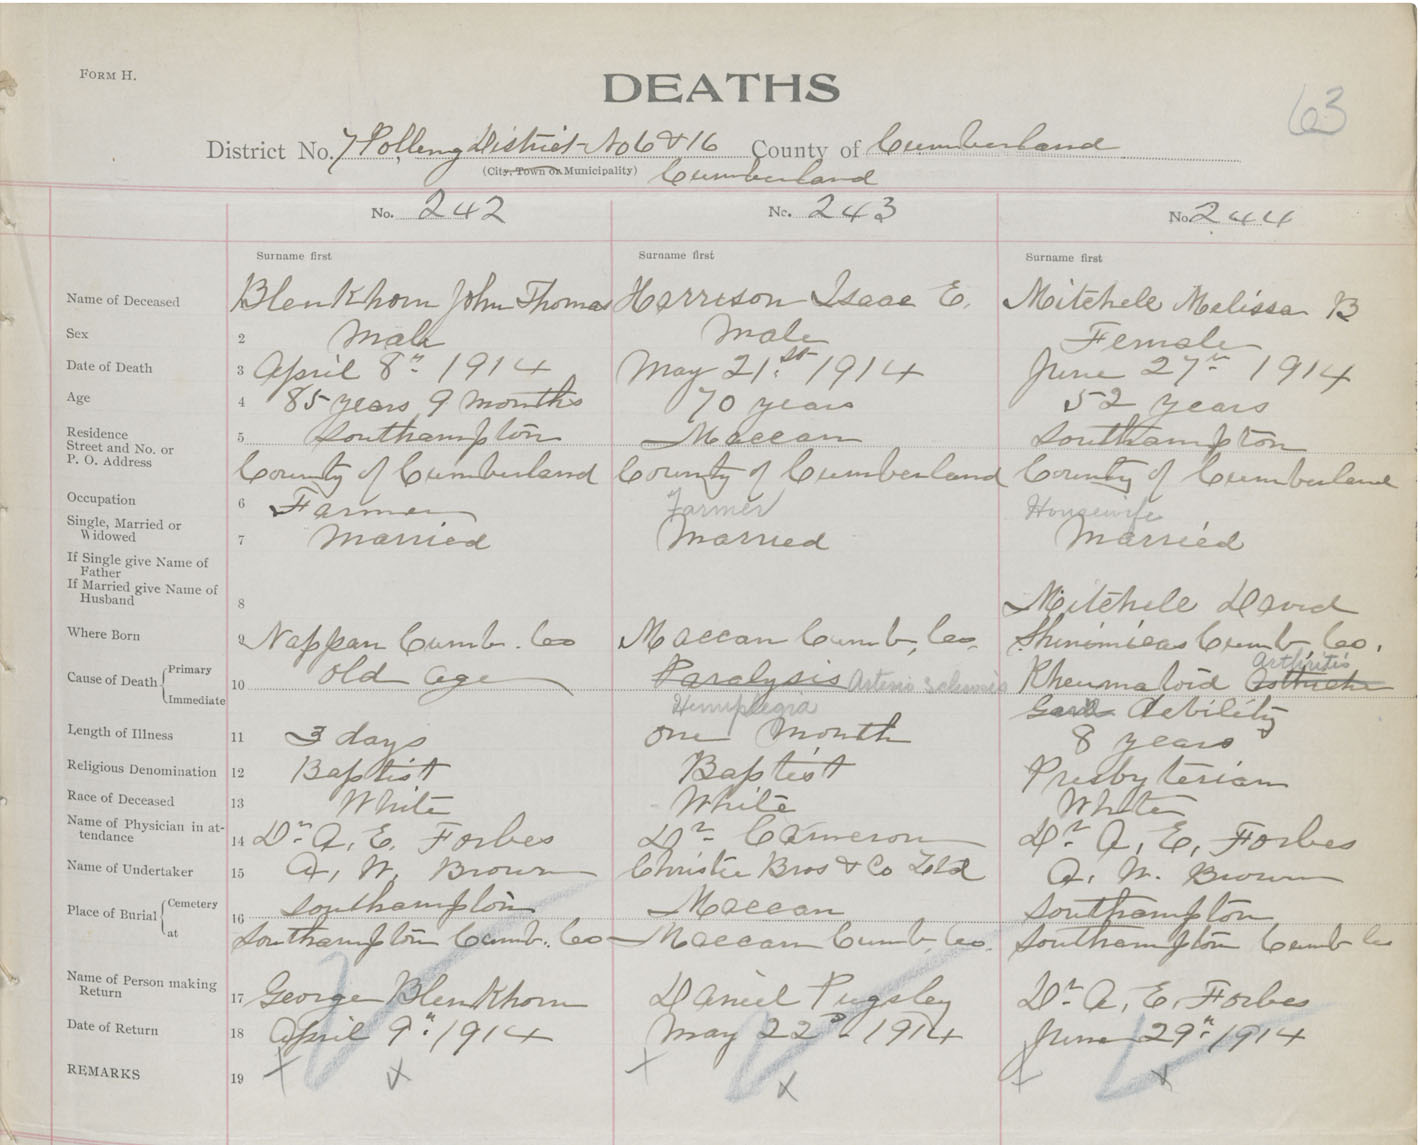 FORM H.
DEATHS
63
District No. 7 Polling District No 6 & 16 County of Cumberland
(City, Town or Municipality) Cumberland
No. 242 No. 243 No. 244
Surname first Surname first Surname first
Name of Deceased Blenkhorn John Thomas Harrison Isaac E. Mitchele Melissa B
Sex 2 Male Male Female
Date of Death 3 April 8th 1914 May 21st 1914 June 27th 1914
Age 4 85 years 9 months 70 years 52 years
Residence
Street and No. or 5 Southampton Maccan Southampton
P. O. Address County of Cumberland County of Cumberland County of Cumberland
Occupation 6 Farmer Farmer Housewife
Single, Married or
Widowed 7 Married Married Married
If Single give Name of
Father
If Married give Name of
Husband 8 Mitchele David
Where Born 9 Nappan Cumb. Co Maccan Cumb, Co. Shinimicas Cumb, Co.
Arthritis
Cause of Death Primary 10 Old age Paralysis Arterio Sclerosis Rheumatoid
Immediate Hemiplegia debility
Length of Illness 11 3 days one month 8 years
Religious Denomination 12 Baptist Baptist Presbyterian
Race of Deceased 13 White White White
Name of Physician in at-
tendance 14 Dr. A. E. Forbes Dr Cameron Dr. A. E. Forbes
Name of Undertaker 15 A. W. Brown Christie Bros & Co Ltd A. W. Brown
Place of Burial Cemetery 16 Southampton Maccan Southampton
at Southampton Cumb. Co Maccan Cumb, Co. Southampton Cumb Co
Name of Person making
Return 17 George Blenkhorn Daniel Pugsley Dr. A. E. Forbes
Date of Return 18 April 9th 1914 May 22d 1914 June 29th 1914
REMARKS 19 X X X X X X